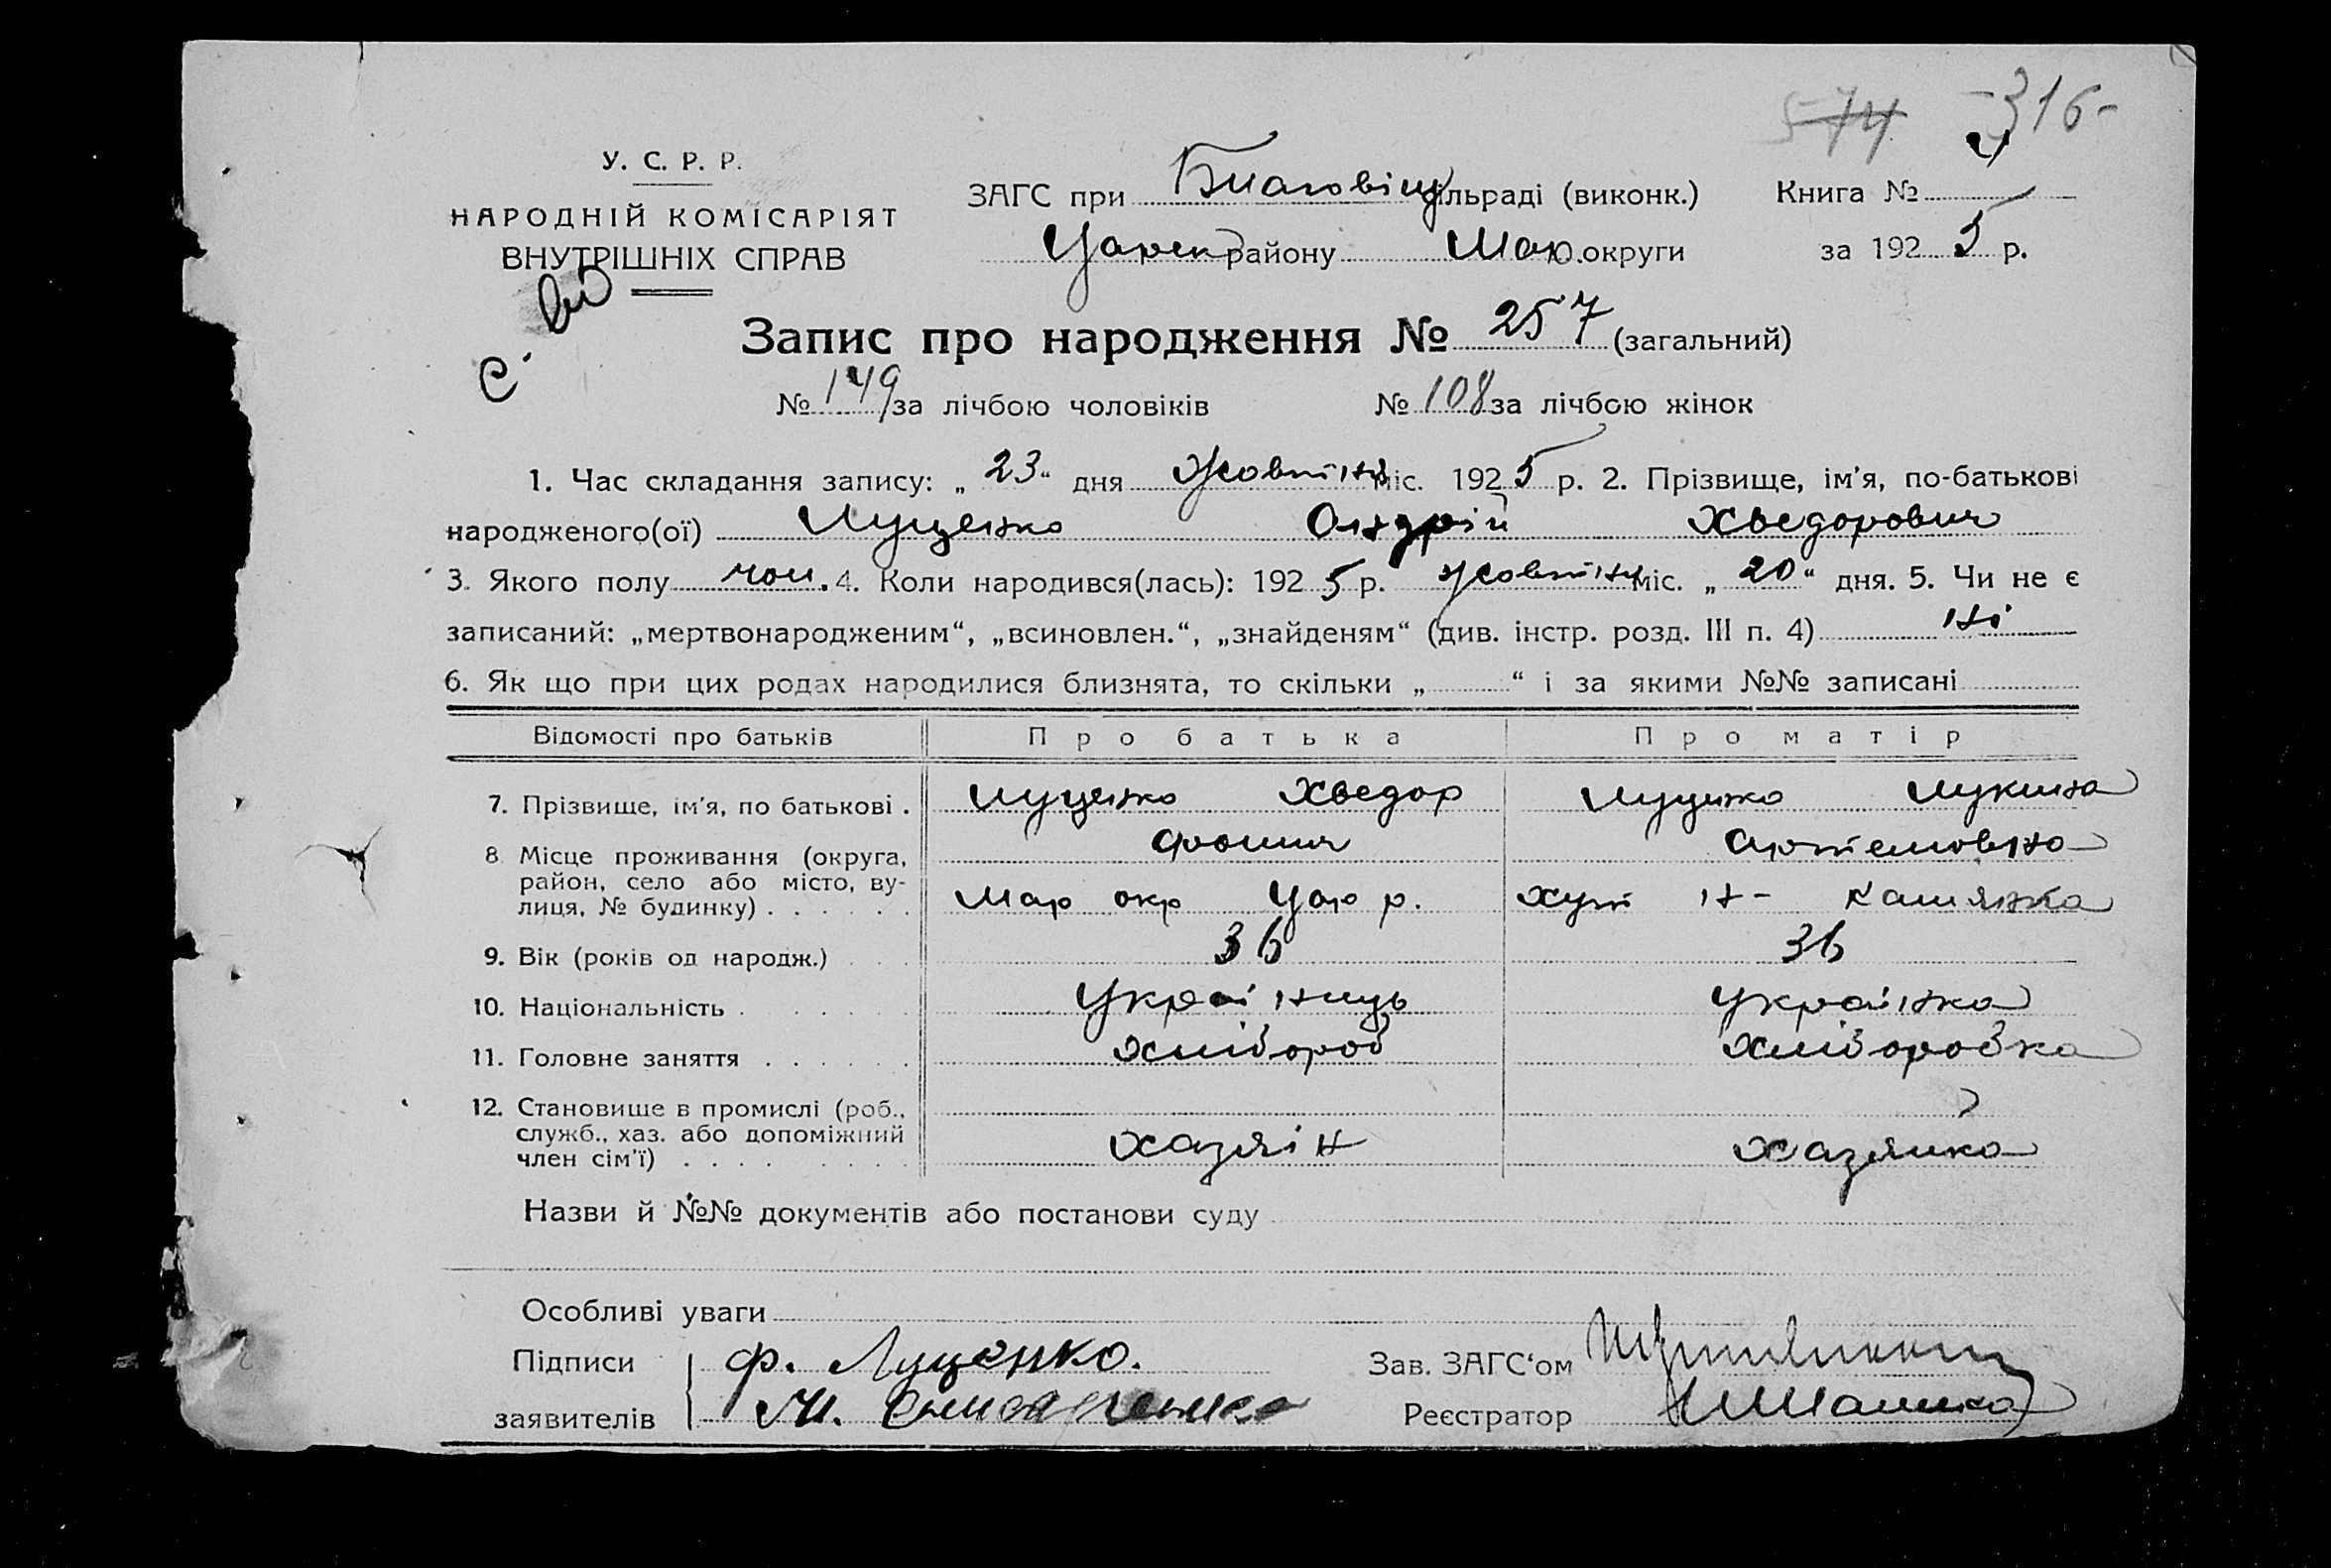 574 -316-
У. С. Р. Р.
НАРОДНІЙ КОМІСАРІЯТ
ВНУТРІШНІХ СПРАВ
ЗАГС при Благовіщ сільраді (виконк.) Книга №
Царек району Мар. округи за 1925 р.
Запис про народження № 257 (загальний)
№ 149 за лічбою чоловіків № 108 за лічбою жінок
1. Час складання запису: „23“ дня жовтня міс. 1925 р. 2. Прізвище, ім'я, по-батькові
народженого(ої) Луценко Андрій Хведорович
3. Якого полу чол. 4. Коли народився(лась): 1925 р. жовтня міс. „20“ дня. 5. Чи не є
записаний: „мертвонародженим“, „всиновлен.“, „знайденям“ (див. інстр. розд. III п. 4) ні
6. Як що при цих родах народилися близнята, то скільки „ “ і за якими №№ записані
Відомості про батьків Про батька Про матір
7. Прізвище, ім'я, по батькові . Луценко Хведор Луценко Лукина
8. Місце проживання (округа, Артемовна
район, село або місто, ву-
лиця, № будинку) . . . . . . Мар окр Цар р. Хут Н- Камянка
9. Вік (років од народж.) . . . 36 36
10. Національність . . . . . . Українець Українка
11. Головне заняття . . . . . . хлібороб хліборобка
12. Становище в промислі (роб.,
служб., хаз. або допоміжний
член сім'ї) . . . . . . . . хазяїн хазяйка
Назви й №№ документів або постанови суду
Особливі уваги
Підписи Ф. Луценко. Зав. ЗАГС'ом
заявителів М. Реєстратор